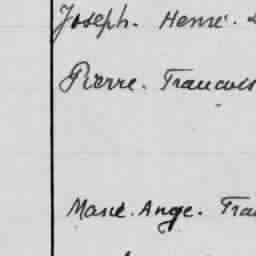 Joseph. Henri.
Pierre. Francois
Marie. Ange. Fra